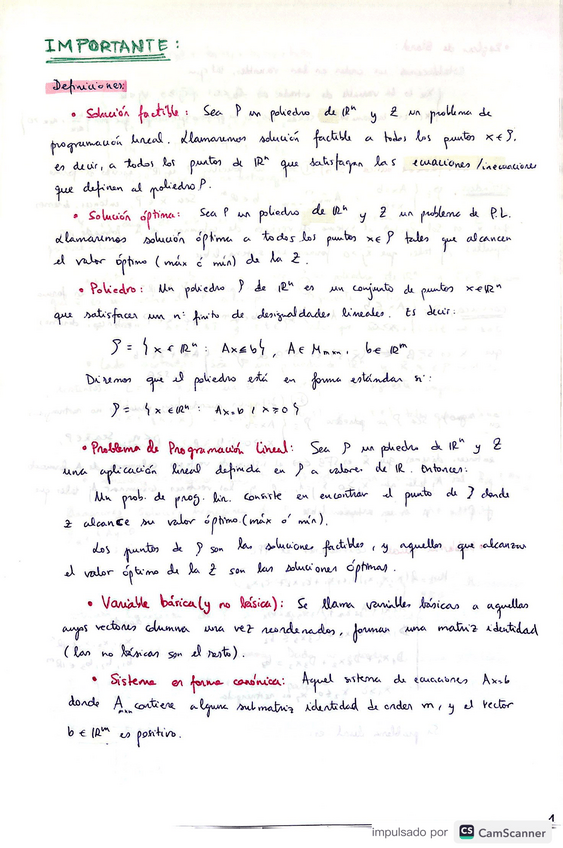 IMPORTANTE:
Definiciones:
• Solución factible: Sea P un poliedro de ℝⁿ y Z un problema de
programación lineal. Llamaremos solución factible a todos los puntos x ∈ P,
es decir, a todos los puntos de ℝⁿ que satisfagan las ecuaciones/inecuaciones
que definen al poliedro P.
• Solución óptima: Sea P un poliedro de ℝⁿ y Z un problema de P.L.
Llamaremos solución óptima a todos los puntos x ∈ P tales que alcancen
el valor óptimo (máx ó mín) de la Z.
• Poliedro: Un poliedro P de ℝⁿ es un conjunto de puntos x ∈ ℝⁿ
que satisfacer un nº finito de desigualdades lineales. Es decir:
P = { x ∈ ℝⁿ : Ax ≤ b } , A ∈ Mₘₓₙ , b ∈ ℝᵐ
Diremos que el poliedro está en forma estándar si:
P = { x ∈ ℝⁿ : Ax = b , x ≥ 0 }
• Problema de Programación Lineal: Sea P un poliedro de ℝⁿ y Z
una aplicación lineal definida en P a valores de ℝ. Entonces:
Un prob. de prog. lin. consiste en encontrar el punto de P donde
Z alcance su valor óptimo (máx ó mín).
Los puntos de P son las soluciones factibles, y aquellos que alcanzan
el valor óptimo de la Z son las soluciones óptimas.
• Variable básica (y no básica): Se llama variables básicas a aquellas
cuyos vectores columna una vez reordenados, forman una matriz identidad
(las no básicas son el resto).
• Sistema en forma canónica: Aquel sistema de ecuaciones Ax=b
donde Aₘₓₙ contiene alguna submatriz identidad de orden m, y el vector
b ∈ ℝᵐ es positivo.
1
impulsado por CS CamScanner